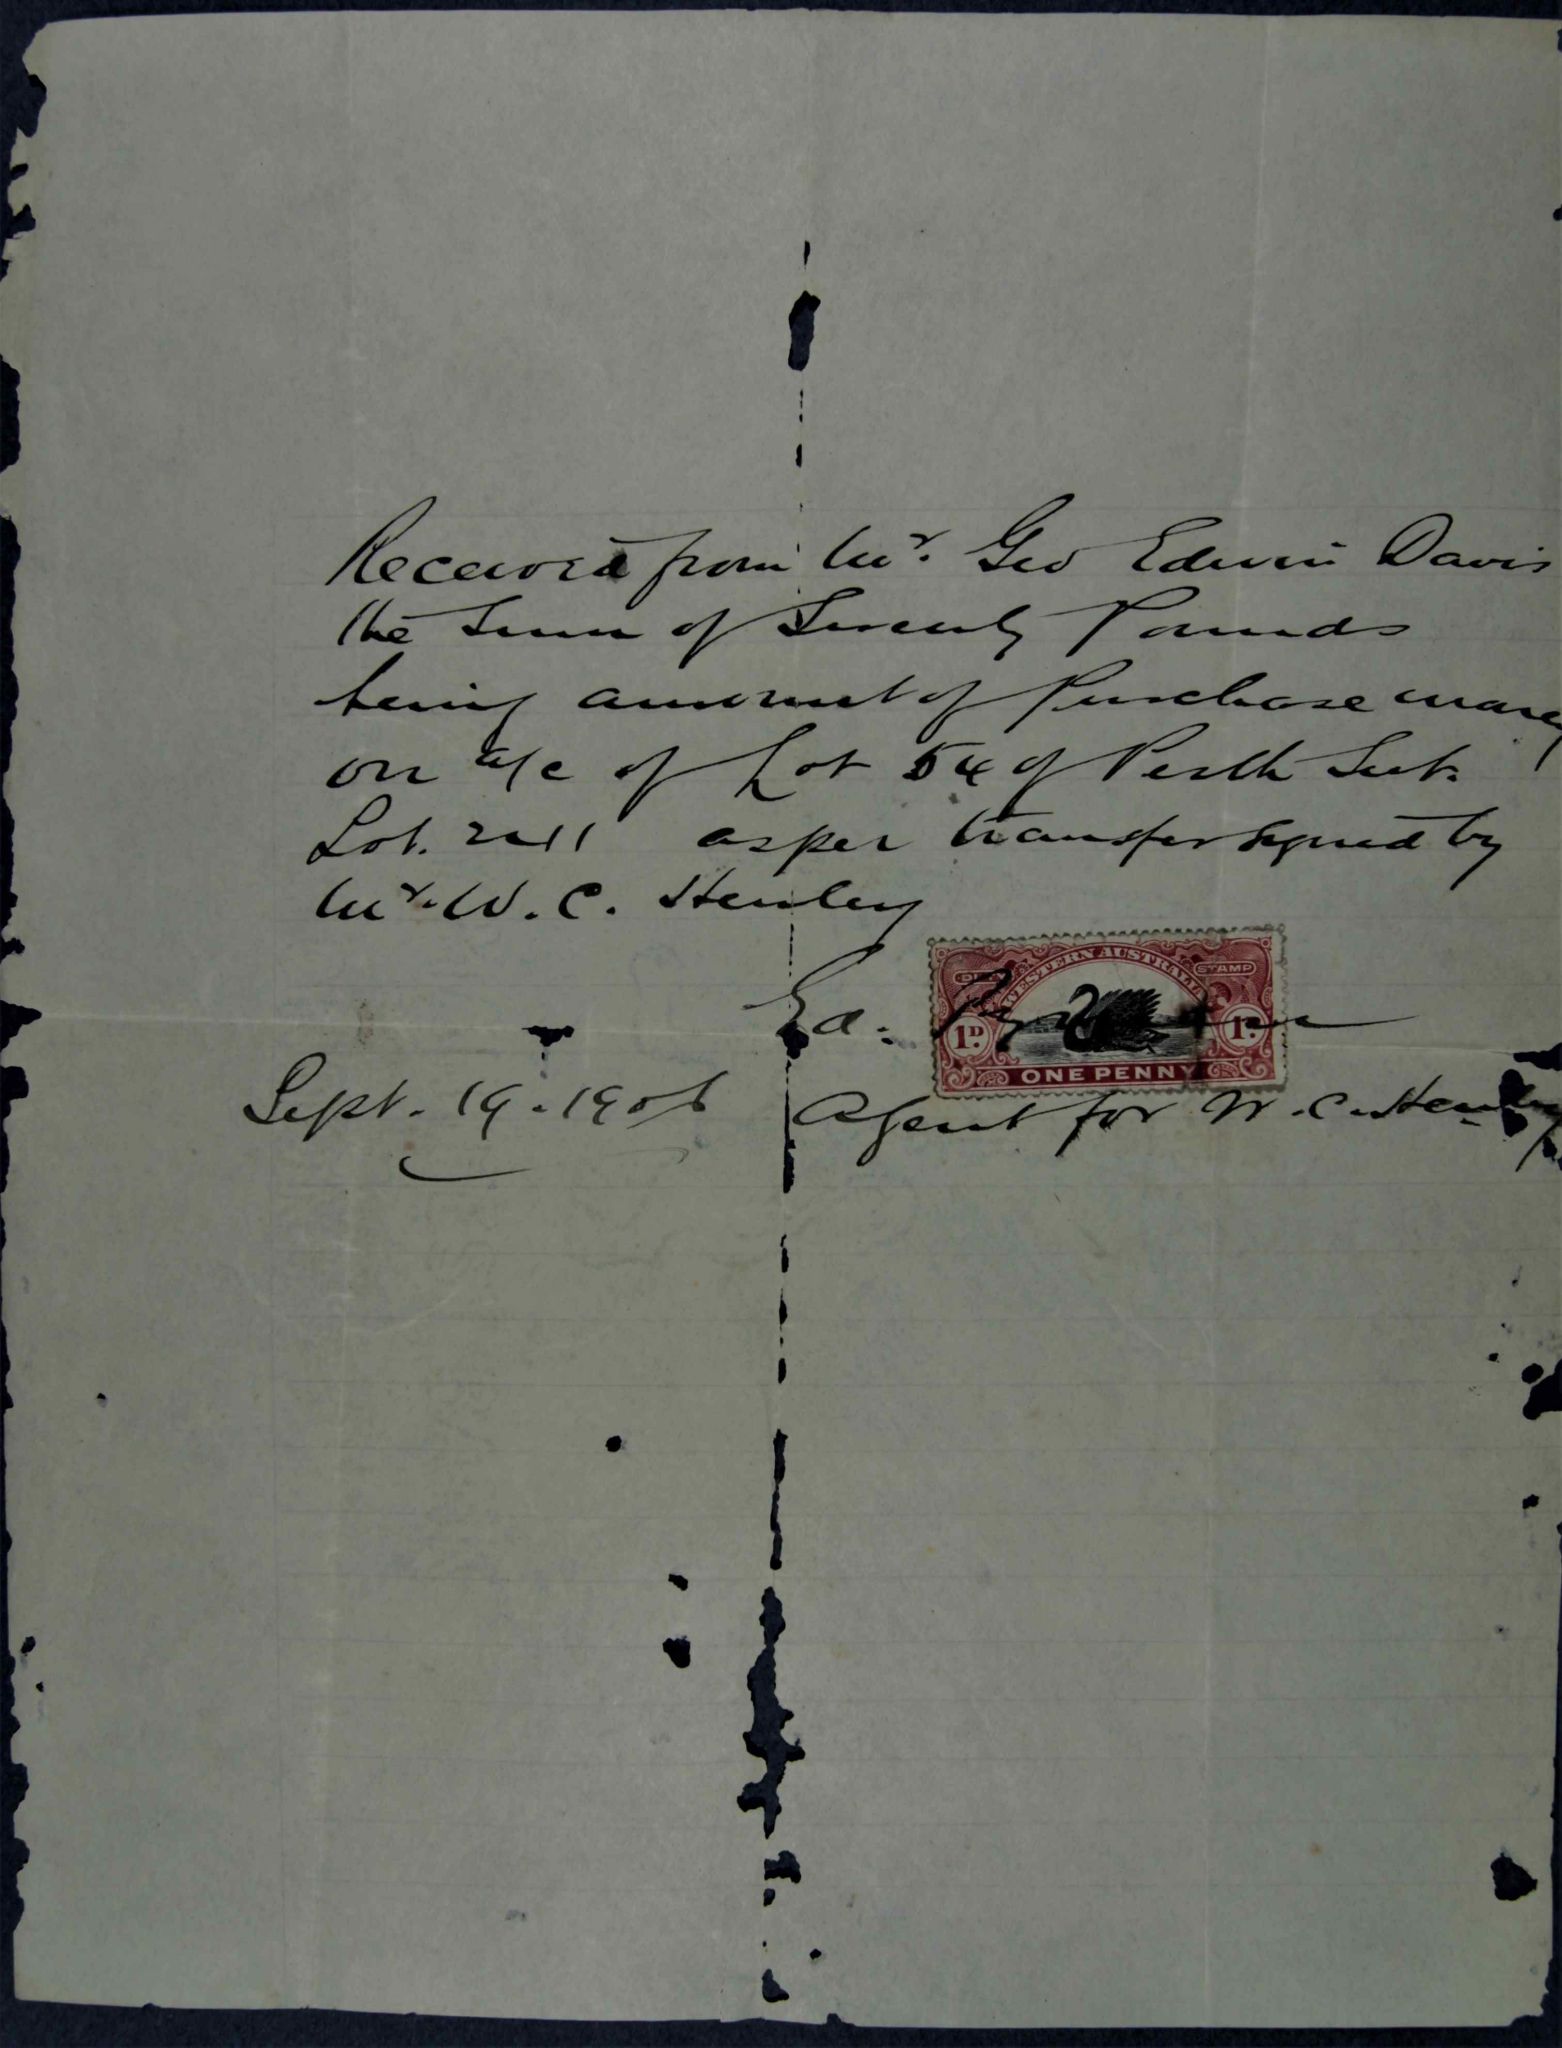 Received from Mr. Geo Edwin Davis
the Sum of Seventy Pounds
being amount of Purchase money
on a/c of Lot 54 of Perth Sub.
Lot. 2411 as per transfer signed by
Mr. W. C. Henley
WESTERN AUSTRALIA
STAMP
Ed.
1D. 1D.
ONE PENNY
Sept. 19. 1906 Agent for W. C. Henley